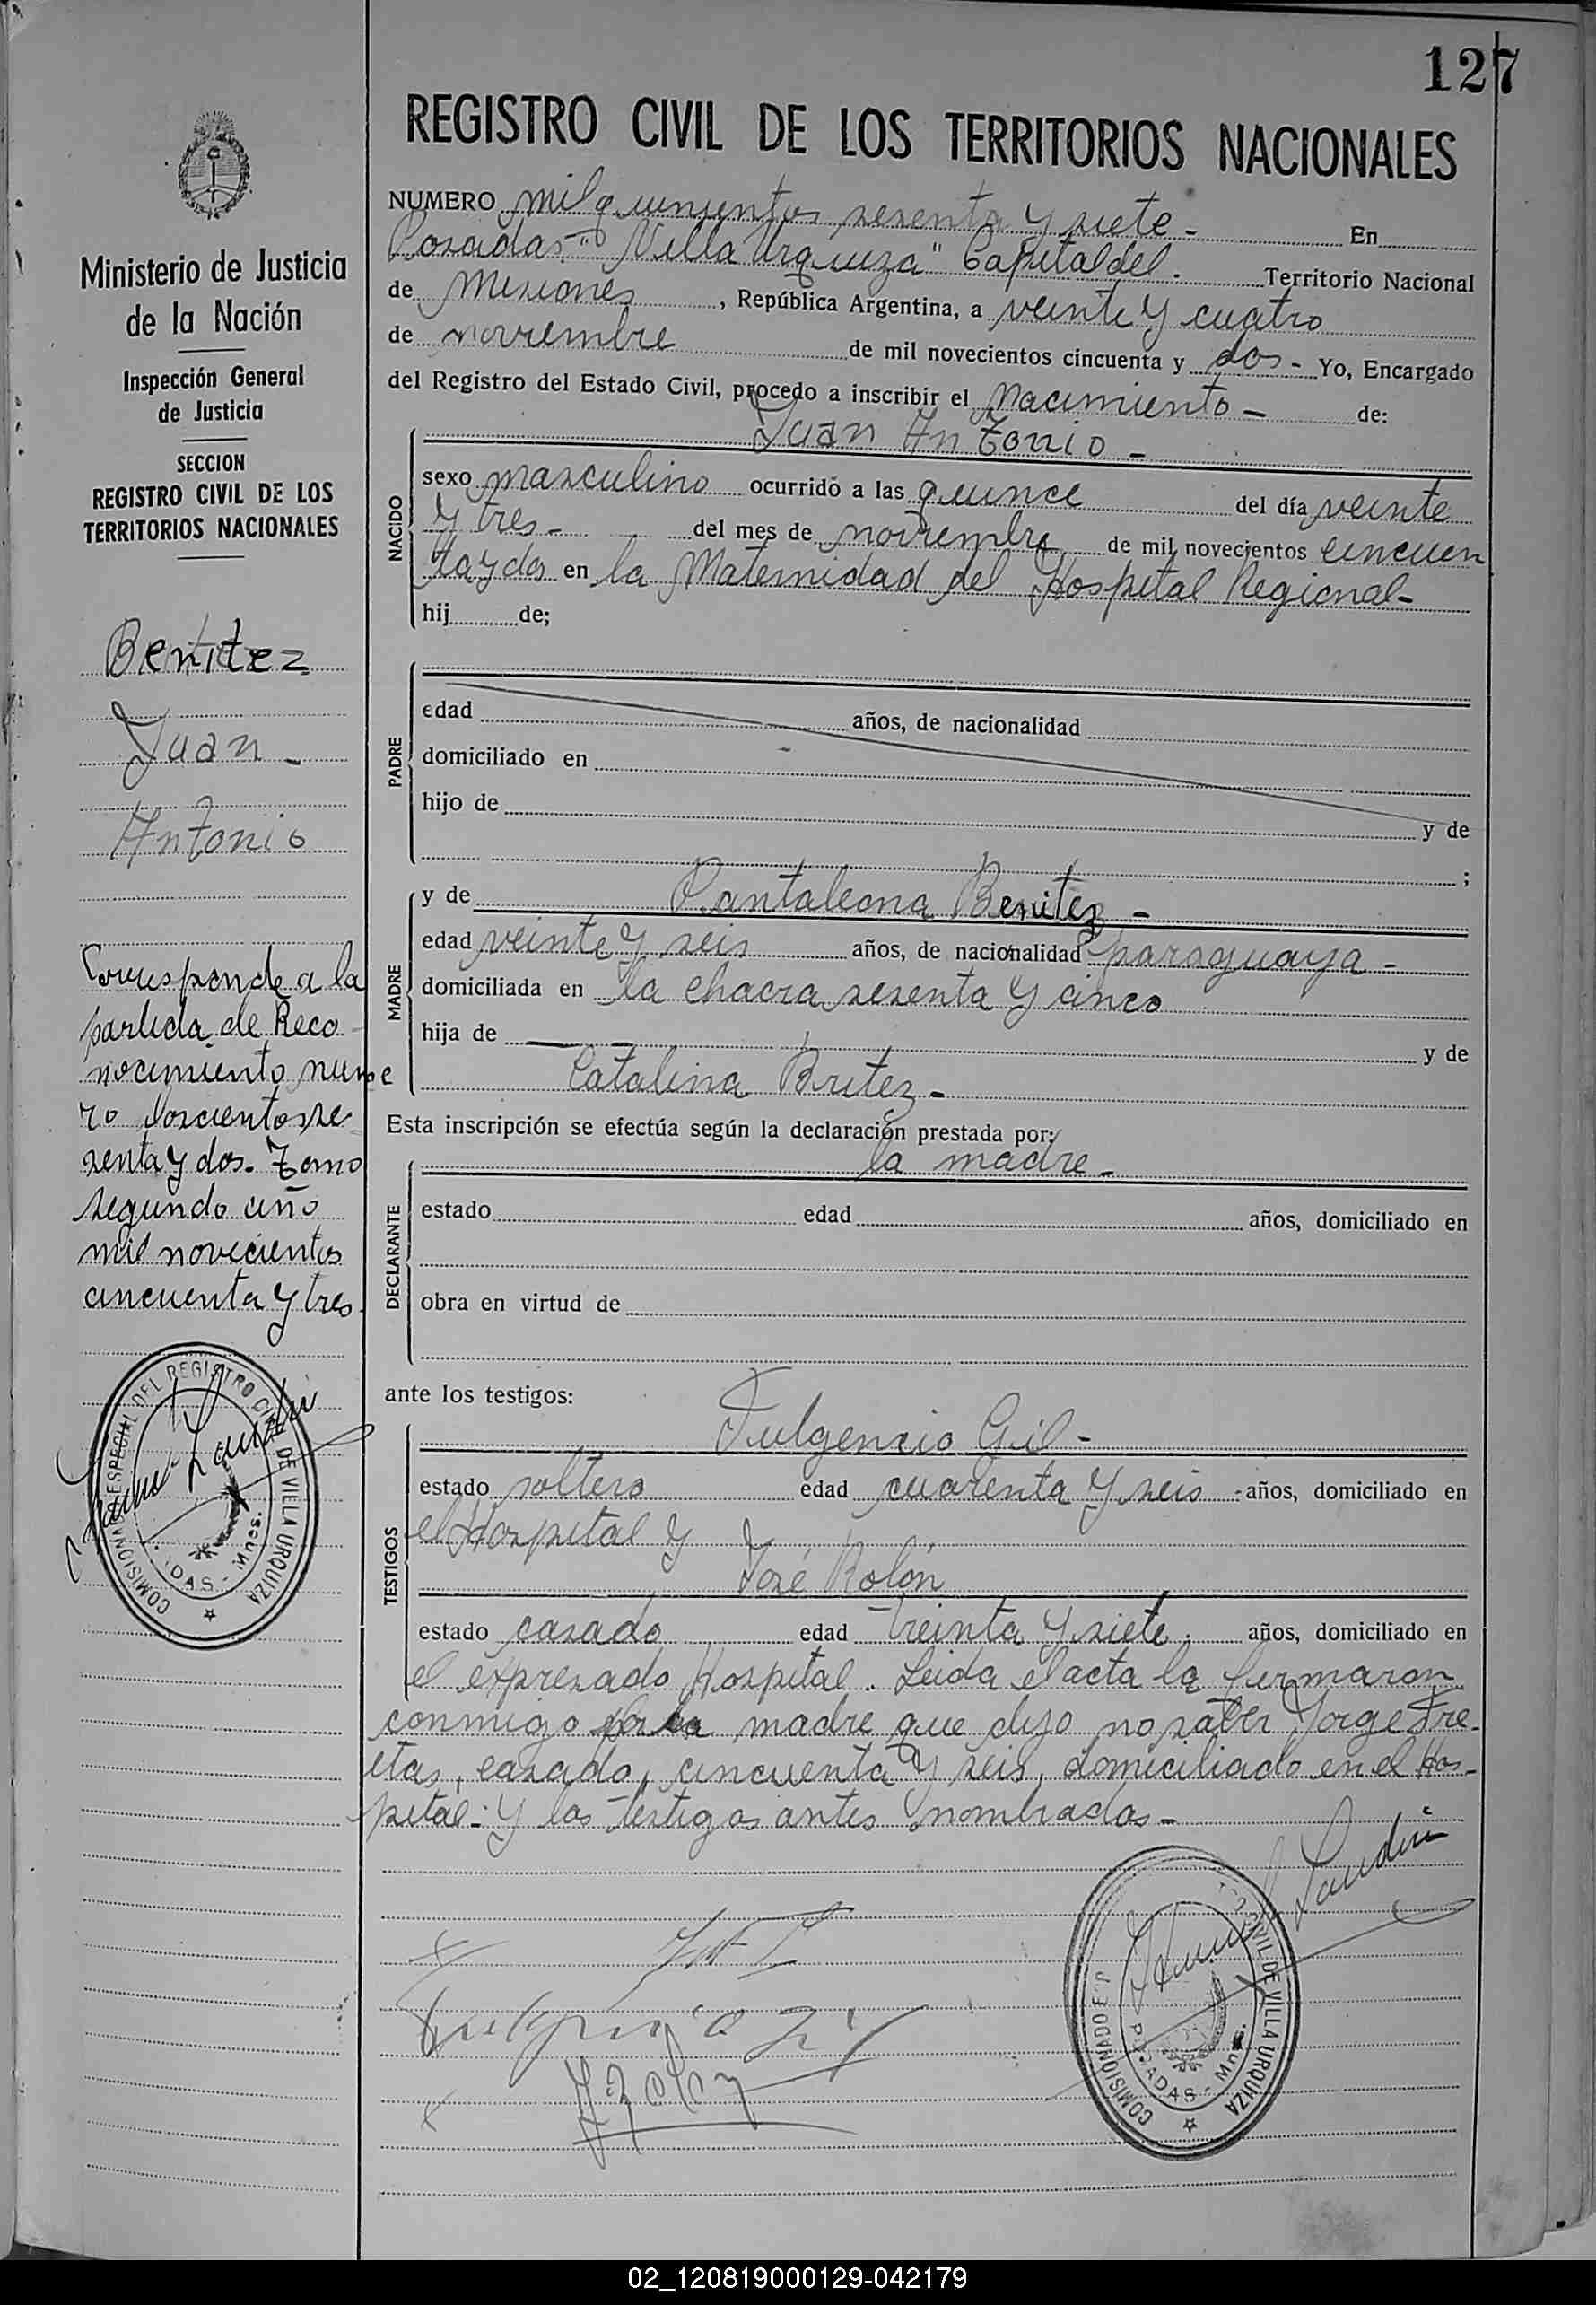 127
REGISTRO CIVIL DE LOS TERRITORIOS NACIONALES
NUMERO mil quinientos sesenta y siete - En
Posadas - "Villa Urquiza" Capital del. Territorio Nacional
de Misiones, República Argentina, a veinte y cuatro
de noviembre de mil novecientos cincuenta y dos - Yo, Encargado
del Registro del Estado Civil, procedo a inscribir el Nacimiento - de:
Juan Antonio -
NACIDO
sexo masculino ocurrido a las quince del día veinte
y tres - del mes de noviembre de mil novecientos cincuen
ta y dos en la Maternidad del Hospital Regional -
hij de;
PADRE
edad años, de nacionalidad
domiciliado en
hijo de y de
;
MADRE
y de Pantaleona Benitez -
edad veinte y seis años, de nacionalidad paraguaya -
domiciliada en la chacra sesenta y cinco
hija de — y de
Catalina Britez -
Esta inscripción se efectúa según la declaración prestada por:
la madre -
DECLARANTE
estado edad años, domiciliado en
obra en virtud de
ante los testigos:
TESTIGOS
Fulgencio Gil -
estado soltero edad cuarenta y seis - años, domiciliado en
el Hospital y
José Rolón
estado casado edad treinta y siete. años, domiciliado en
el expresado Hospital. Leida el acta la firmaron
conmigo por la madre que dijo no saber Jorge Fre-
itas, casado, cincuenta y seis, domiciliado en el Hos-
pital - y los testigos antes nombrados -
Landini
COMISIONADO CIVIL DE VILLA URQUIZA
POSADAS - Mnes.
Ministerio de Justicia
de la Nación
Inspección General
de Justicia
SECCION
REGISTRO CIVIL DE LOS
TERRITORIOS NACIONALES
Benitez
Juan -
Antonio
Corresponde a la
partida de Reco
nocimiento nume
ro doscientos se
senta y dos. Tomo
segundo año
mil novecientos
cincuenta y tres.
COMISIONADO ESPECIAL DEL REGISTRO CIVIL DE VILLA URQUIZA
DAS - Mnes.
02_120819000129-042179